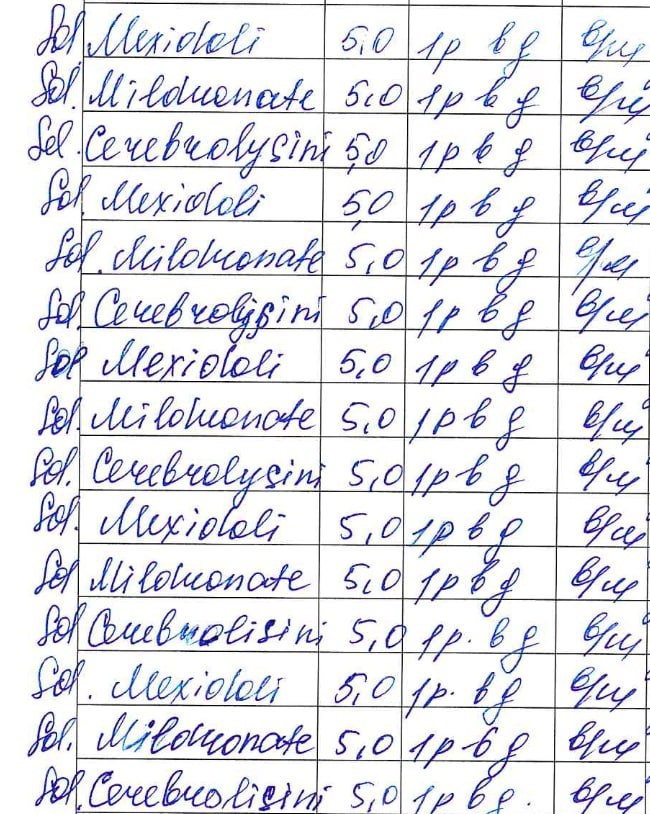 Sol Mexidoli 5,0 1р в д в/м
Sol. Mildronate 5,0 1р в д в/м
Sol. Cerebrolysini 5,0 1р в д в/м
Sol. Mexidoli 5,0 1р в д в/м
Sol. Mildronate 5,0 1р в д в/м
Sol. Cerebrolysini 5,0 1р в д в/м
Sol Mexidoli 5,0 1р в д в/м
Sol. Mildronate 5,0 1р в д в/м
Sol. Cerebrolysini 5,0 1р в д в/м
Sol. Mexidoli 5,0 1р в д в/м
Sol Mildronate 5,0 1р в д в/м
Sol Cerebrolisini 5,0 1р. в д в/м
Sol. Mexidoli 5,0 1р. в д в/м
Sol. Mildronate 5,0 1р в д в/м
Sol. Cerebrolisini 5,0 1р в д. в/м